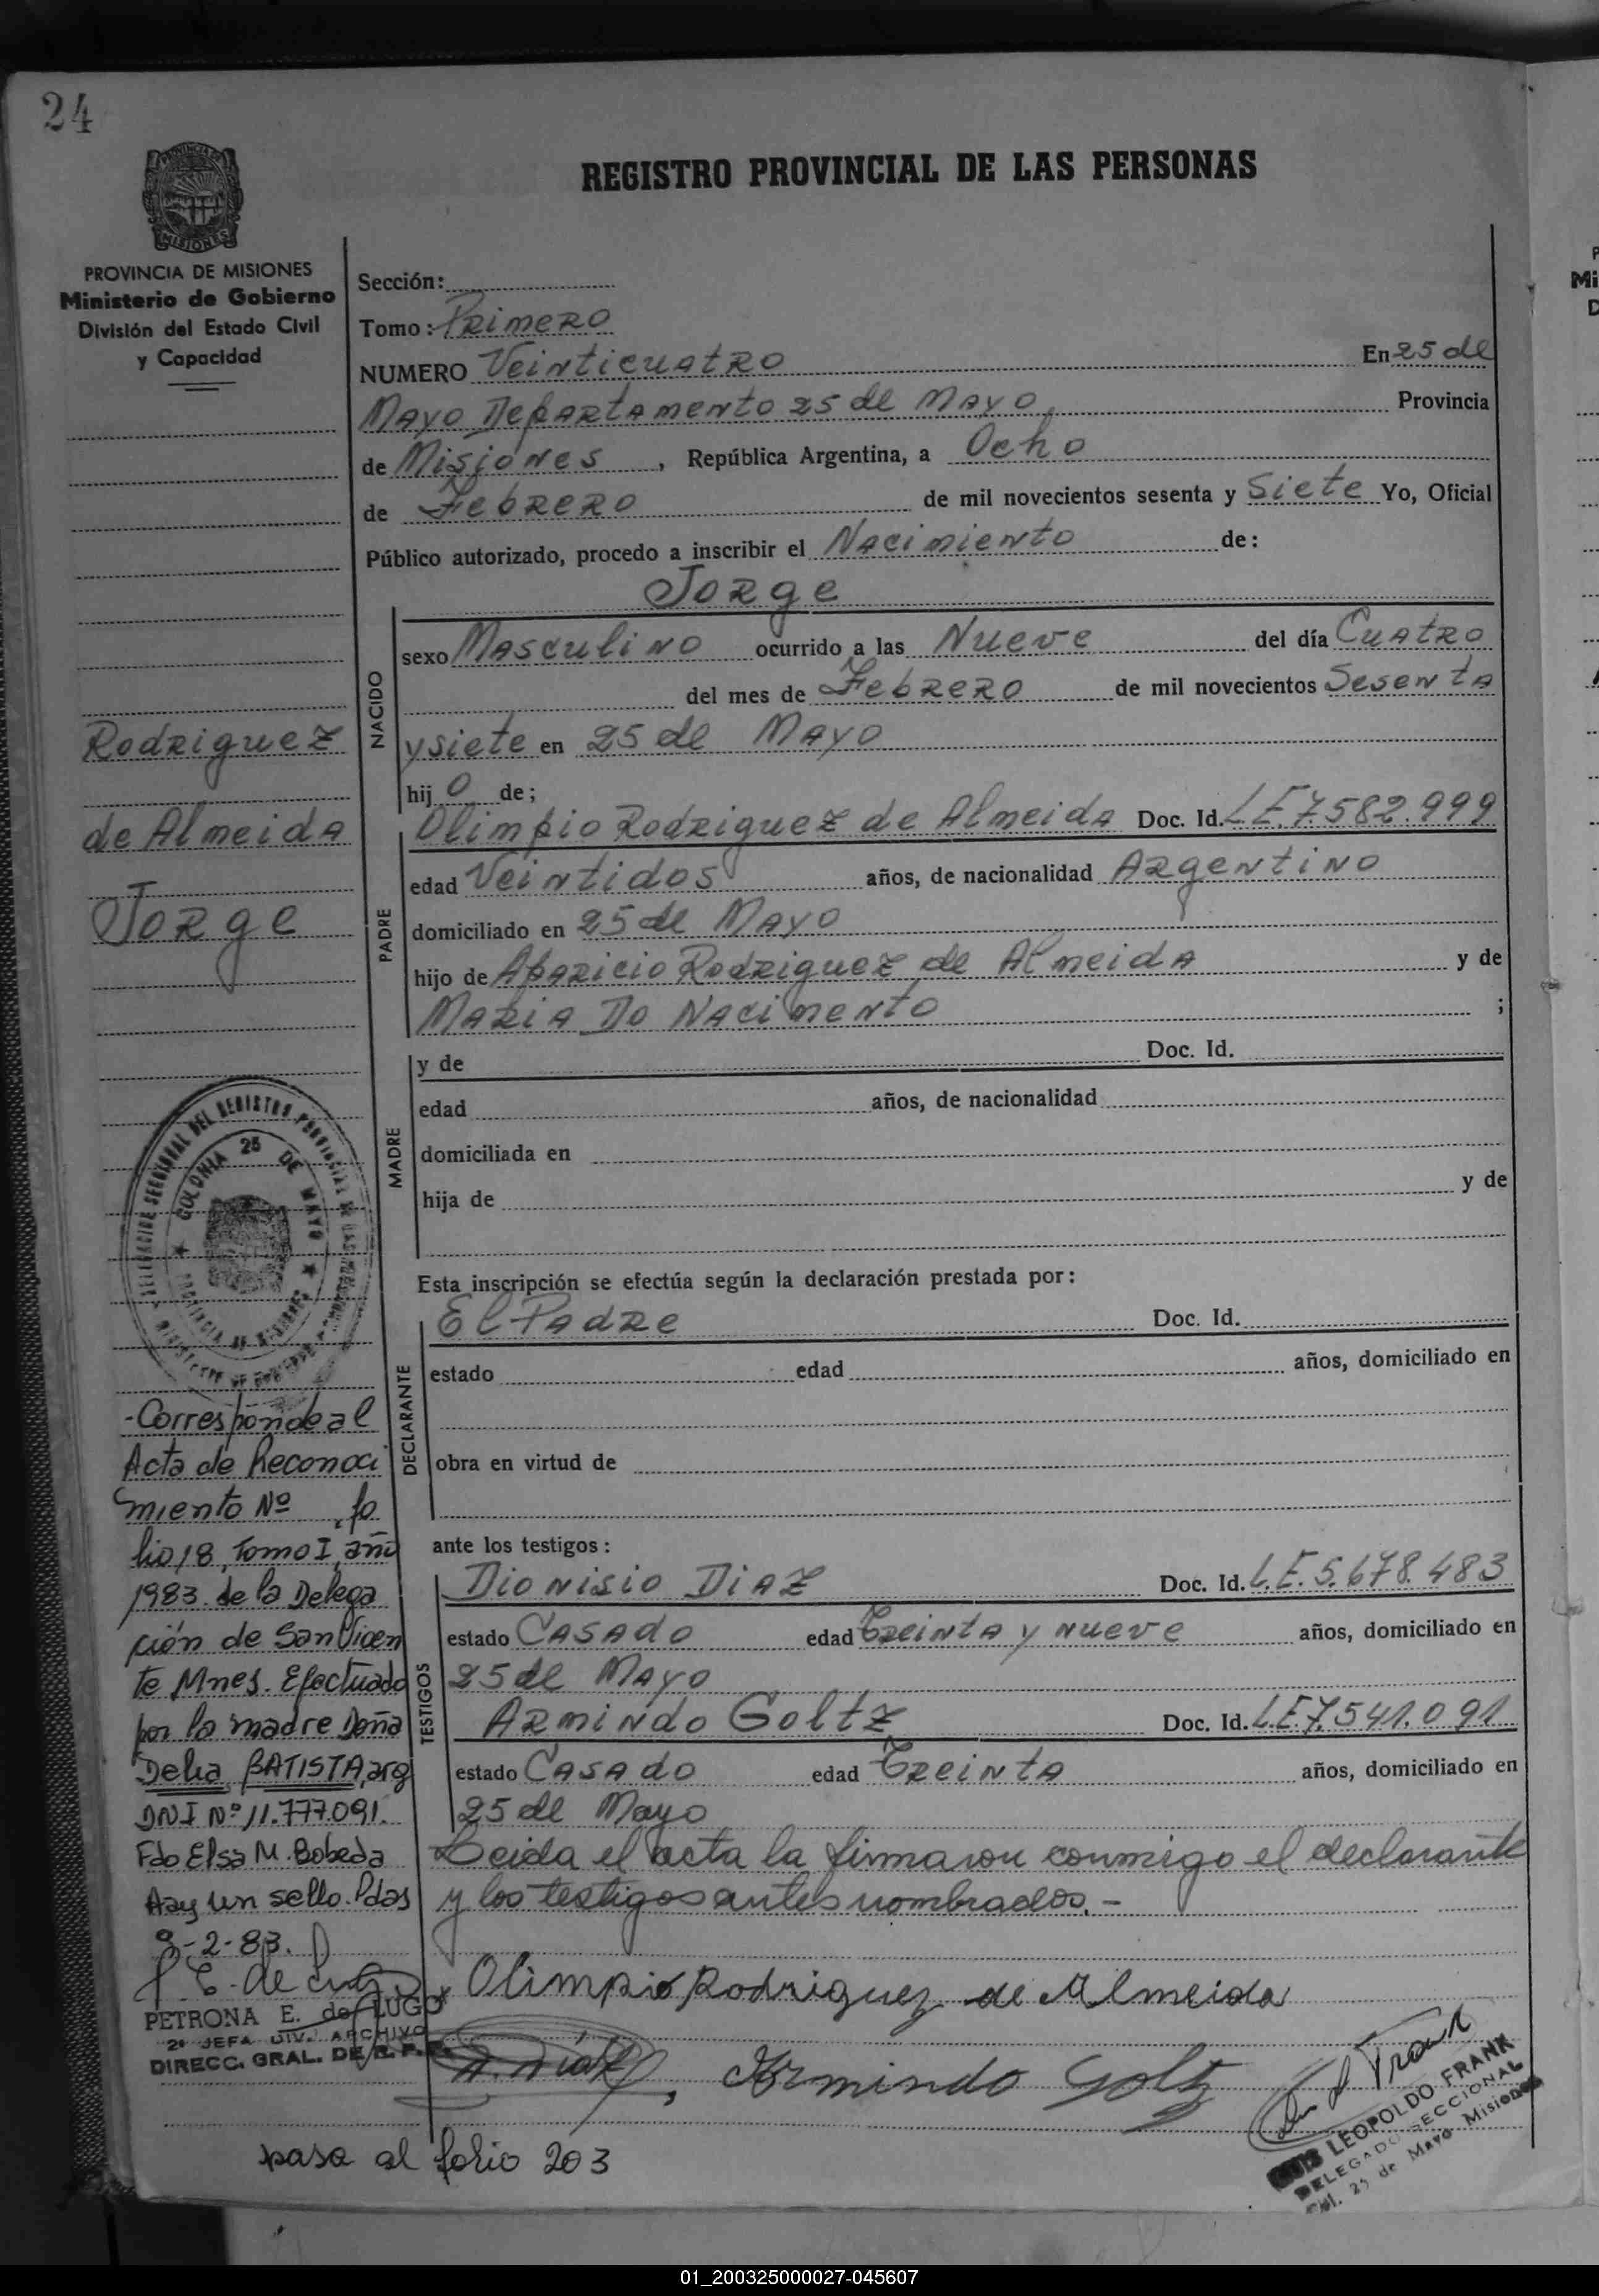 24
PROVINCIA DE
MISIONES
REGISTRO PROVINCIAL DE LAS PERSONAS
PROVINCIA DE MISIONES
Ministerio de Gobierno
División del Estado Civil
y Capacidad
Sección:
Tomo: Primero
NUMERO Veinticuatro En 25 de
Mayo Departamento 25 de Mayo, Provincia
de Misiones, República Argentina, a Ocho
de Febrero de mil novecientos sesenta y Siete Yo, Oficial
Público autorizado, procedo a inscribir el Nacimiento de:
Jorge
NACIDO
sexo Masculino ocurrido a las Nueve del día Cuatro
del mes de Febrero de mil novecientos Sesenta
y siete en 25 de Mayo
hijo de;
PADRE
Olimpio Rodriguez de Almeida Doc. Id. L.E.7.582.999
edad Veintidos años, de nacionalidad Argentino
domiciliado en 25 de Mayo
hijo de Aparicio Rodriguez de Almeida y de
Maria Do Nacimento ;
MADRE
y de Doc. Id.
edad años, de nacionalidad
domiciliada en
hija de y de
Esta inscripción se efectúa según la declaración prestada por:
DECLARANTE
El Padre Doc. Id.
estado edad años, domiciliado en
obra en virtud de
ante los testigos:
TESTIGOS
Dionisio Diaz Doc. Id. L.E.5.678.483
estado Casado edad Treinta y nueve años, domiciliado en
25 de Mayo
Armindo Goltz Doc. Id. L.E.7.541.091
estado Casado edad Treinta años, domiciliado en
25 de Mayo
Leida el acta la firmaron conmigo el declarante
y los testigos antes nombrados.-
Olimpio Rodriguez de Almeida
D. Diaz, Armindo Goltz
LEOPOLDO FRANK
DELEGADO SECCIONAL
Col. 25 de Mayo Misiones
Rodriguez
de Almeida
Jorge
DELEGACION SECCIONAL DEL REGISTRO PROVINCIAL DE LAS PERSONAS
COLONIA 25 DE MAYO
PROVINCIA DE MISIONES
-Corresponde al
Acta de Reconoci
miento Nº , fo
lio 18, Tomo I, año
1983. de la Delega
ción de San Vicen
te Mnes. Efectuado
por la madre Doña
Delia BATISTA, arg
DNI Nº 11.777.091.
Fdo Elsa M. Bobeda
Hay un sello. Pdas
9-2-83.
PETRONA E. de LUGO
2º JEFA DIV. ARCHIVO
DIRECC. GRAL. DE R. P. P.
pasa al folio 203
01_200325000027-045607